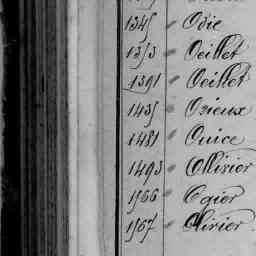 1345 Odie
1353 Oeillet
1391 Oeillet
1435 Ozieux
1481 Ouice
1493 Ollivier
1566 Ogier
1567 Olivier